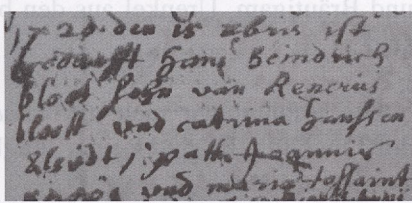 1721 den 15 xbris ist
gedaufft Hans Heindrich
bloet sohn van Renerus
bloett und catrina Hanssen
Eleudt, patt. Joannis
und maria tossaint